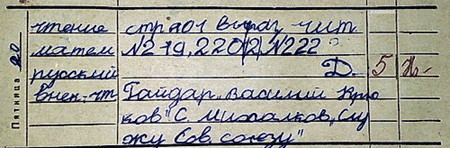 Пятница 20
чтение стр 201 выраз. чит
матем №219, 220(2), №222
русский Д. 5
внек. чт Гайдар „Василий Крюков" С. Михалков „Служу Сов. союзу"